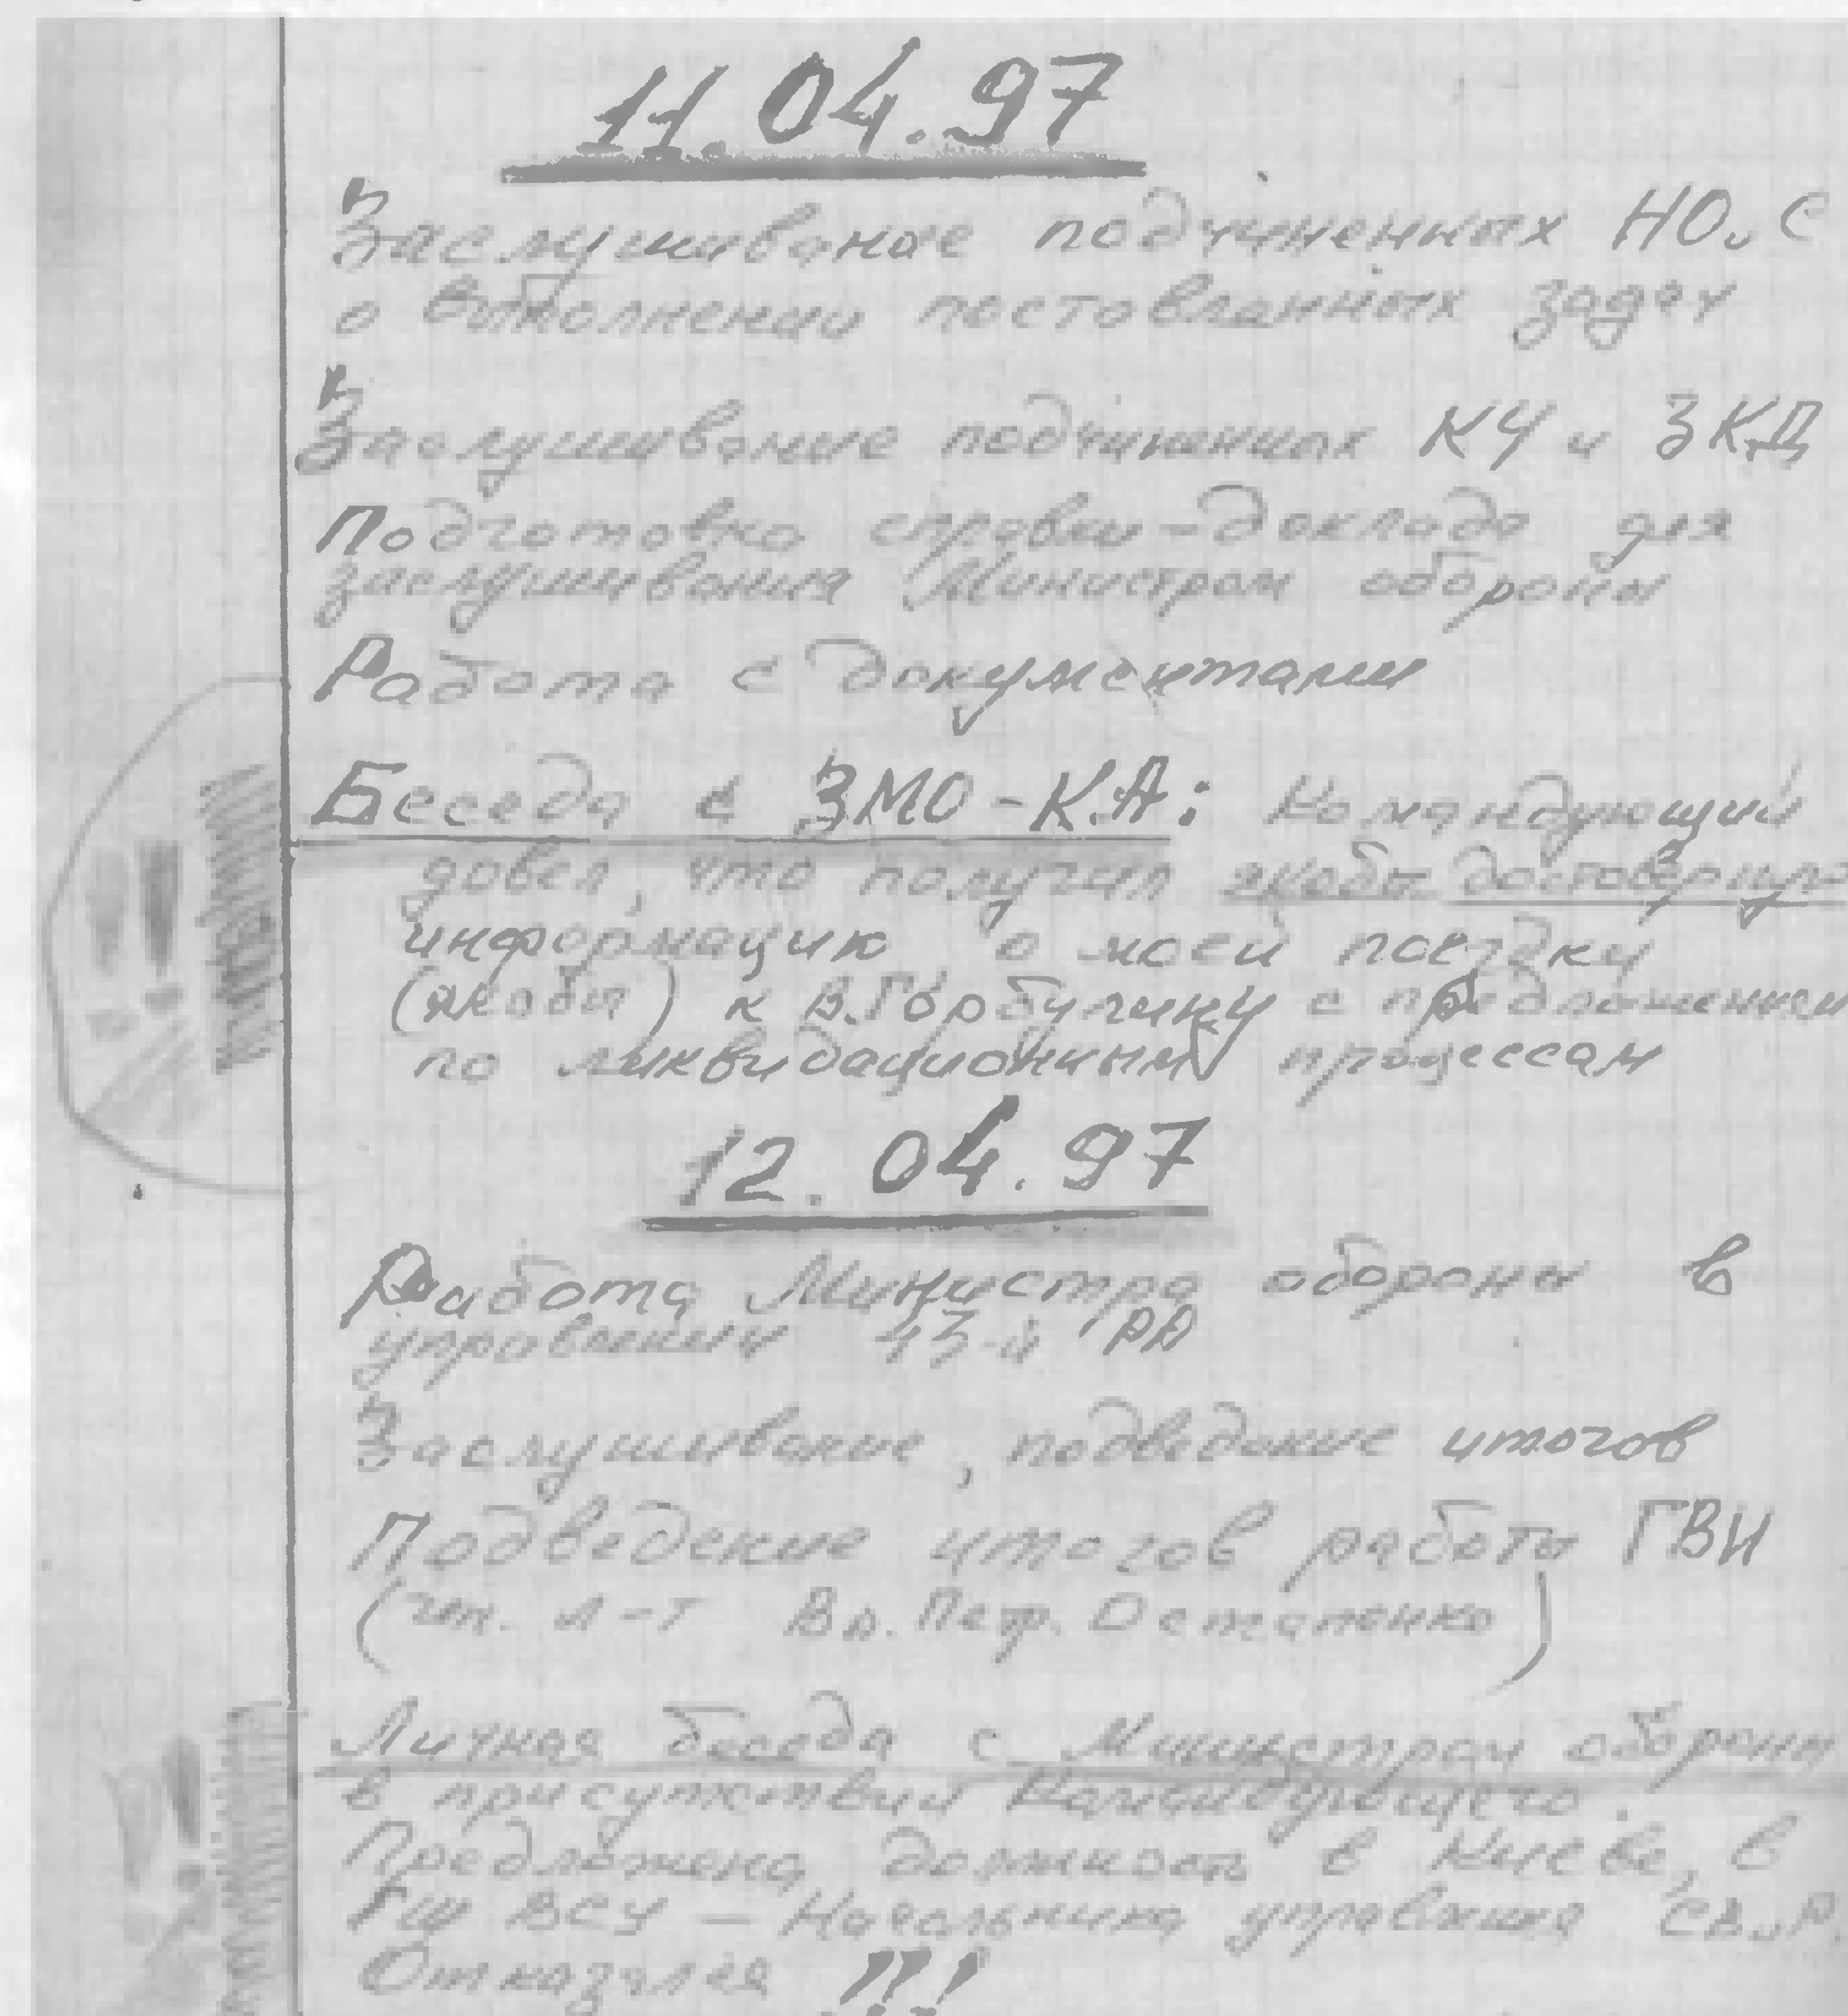 11.04.97
Заслушивание подчиненных НО и С
о выполнении поставленных задач
Заслушивание подчиненных КЧ и ЗКД
Подготовка справки-доклада для
заслушивания Министром обороны
Работа с документами
Беседа с ЗМО-К.А: Командующий
довел, что получил якобы достоверную
информацию о моей поездки
(якобы) к В.Горбулину с предложением
по ликвидационным процессам
!!!
12.04.97
Работа Министра обороны в
управлении 43-й РА
Заслушивание, подведение итогов
Подведение итогов работы ГВИ
(ген. л-т Вл. Петр. Остапенко)
Личная беседа с Министром обороны
в присутствии Командующего.
Предложена должность в Киеве, в
ГШ ВСУ — Начальника управления
Отказался !!!